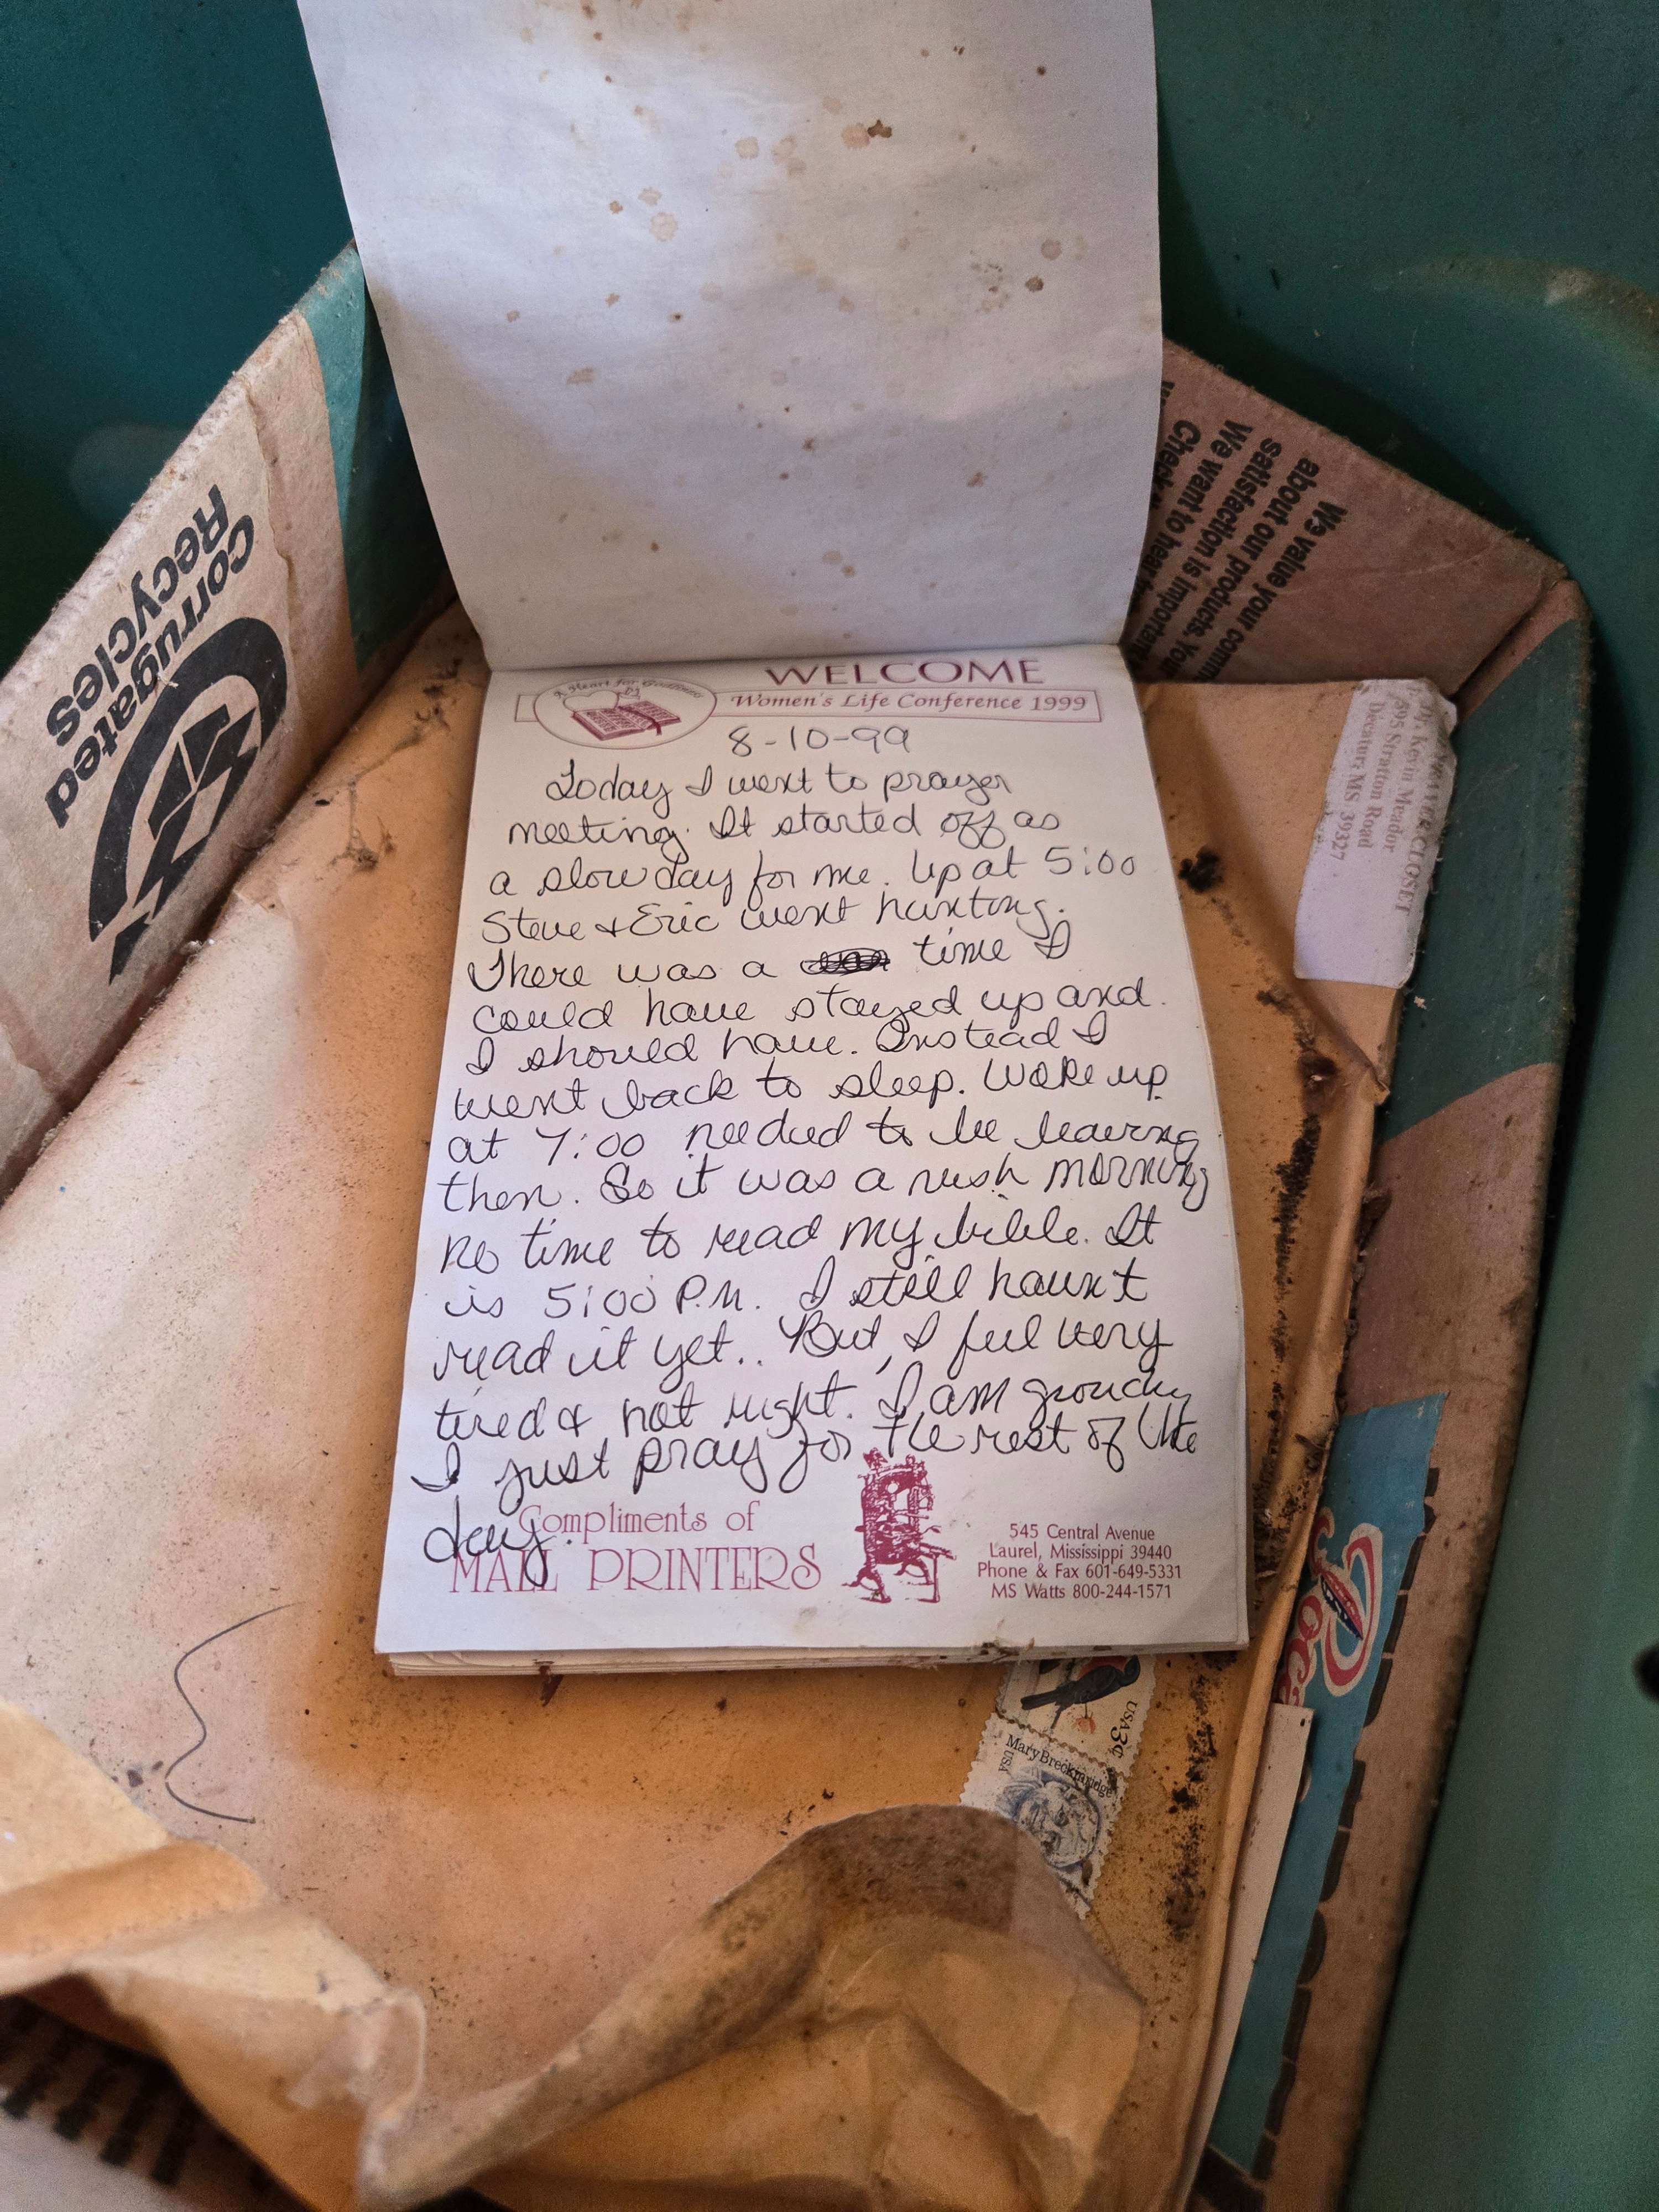 WELCOME
A Heart for Godliness
Women's Life Conference 1999
8-10-99
Today I went to prayer
meeting. It started off as
a slow day for me. Up at 5:00
Steve & Eric went hunting.
There was a time I
could have stayed up and
I should have. Instead I
went back to sleep. Woke up
at 7:00 needed to be leaving
then. So it was a rush morning
no time to read my bible. It
is 5:00 P.M. I still haunt
read it yet.. But, I feel very
tired & not right. I am grouchy
I just pray for the rest of the
day.
Compliments of
MALL PRINTERS
545 Central Avenue
Laurel, Mississippi 39440
Phone & Fax 601-649-5331
MS Watts 800-244-1571
Corrugated
Recycles
We value your comm
about our products. You
satisfaction is important
We want to hear
Check
CLOSET
Kevin Meador
Stratton Road
Decatur, MS 39327
USA 3¢
Mary Breckinridge
USA
Coca